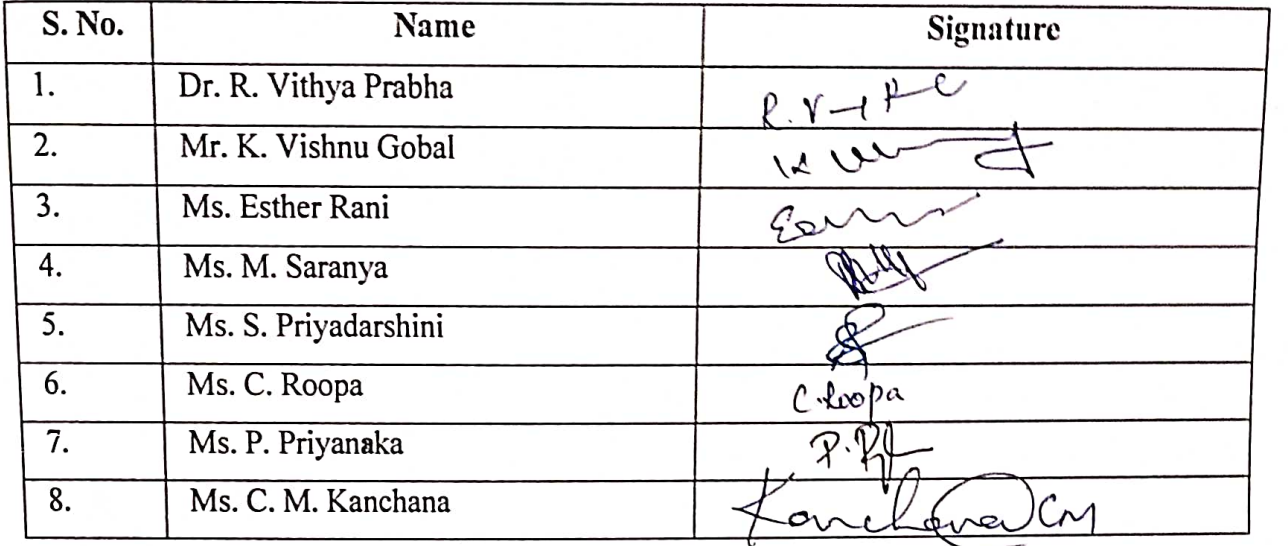 S. No. Name Signature
1. Dr. R. Vithya Prabha
2. Mr. K. Vishnu Gobal
3. Ms. Esther Rani
4. Ms. M. Saranya
5. Ms. S. Priyadarshini
6. Ms. C. Roopa C. Roopa
7. Ms. P. Priyanaka
8. Ms. C. M. Kanchana Kanchana CM